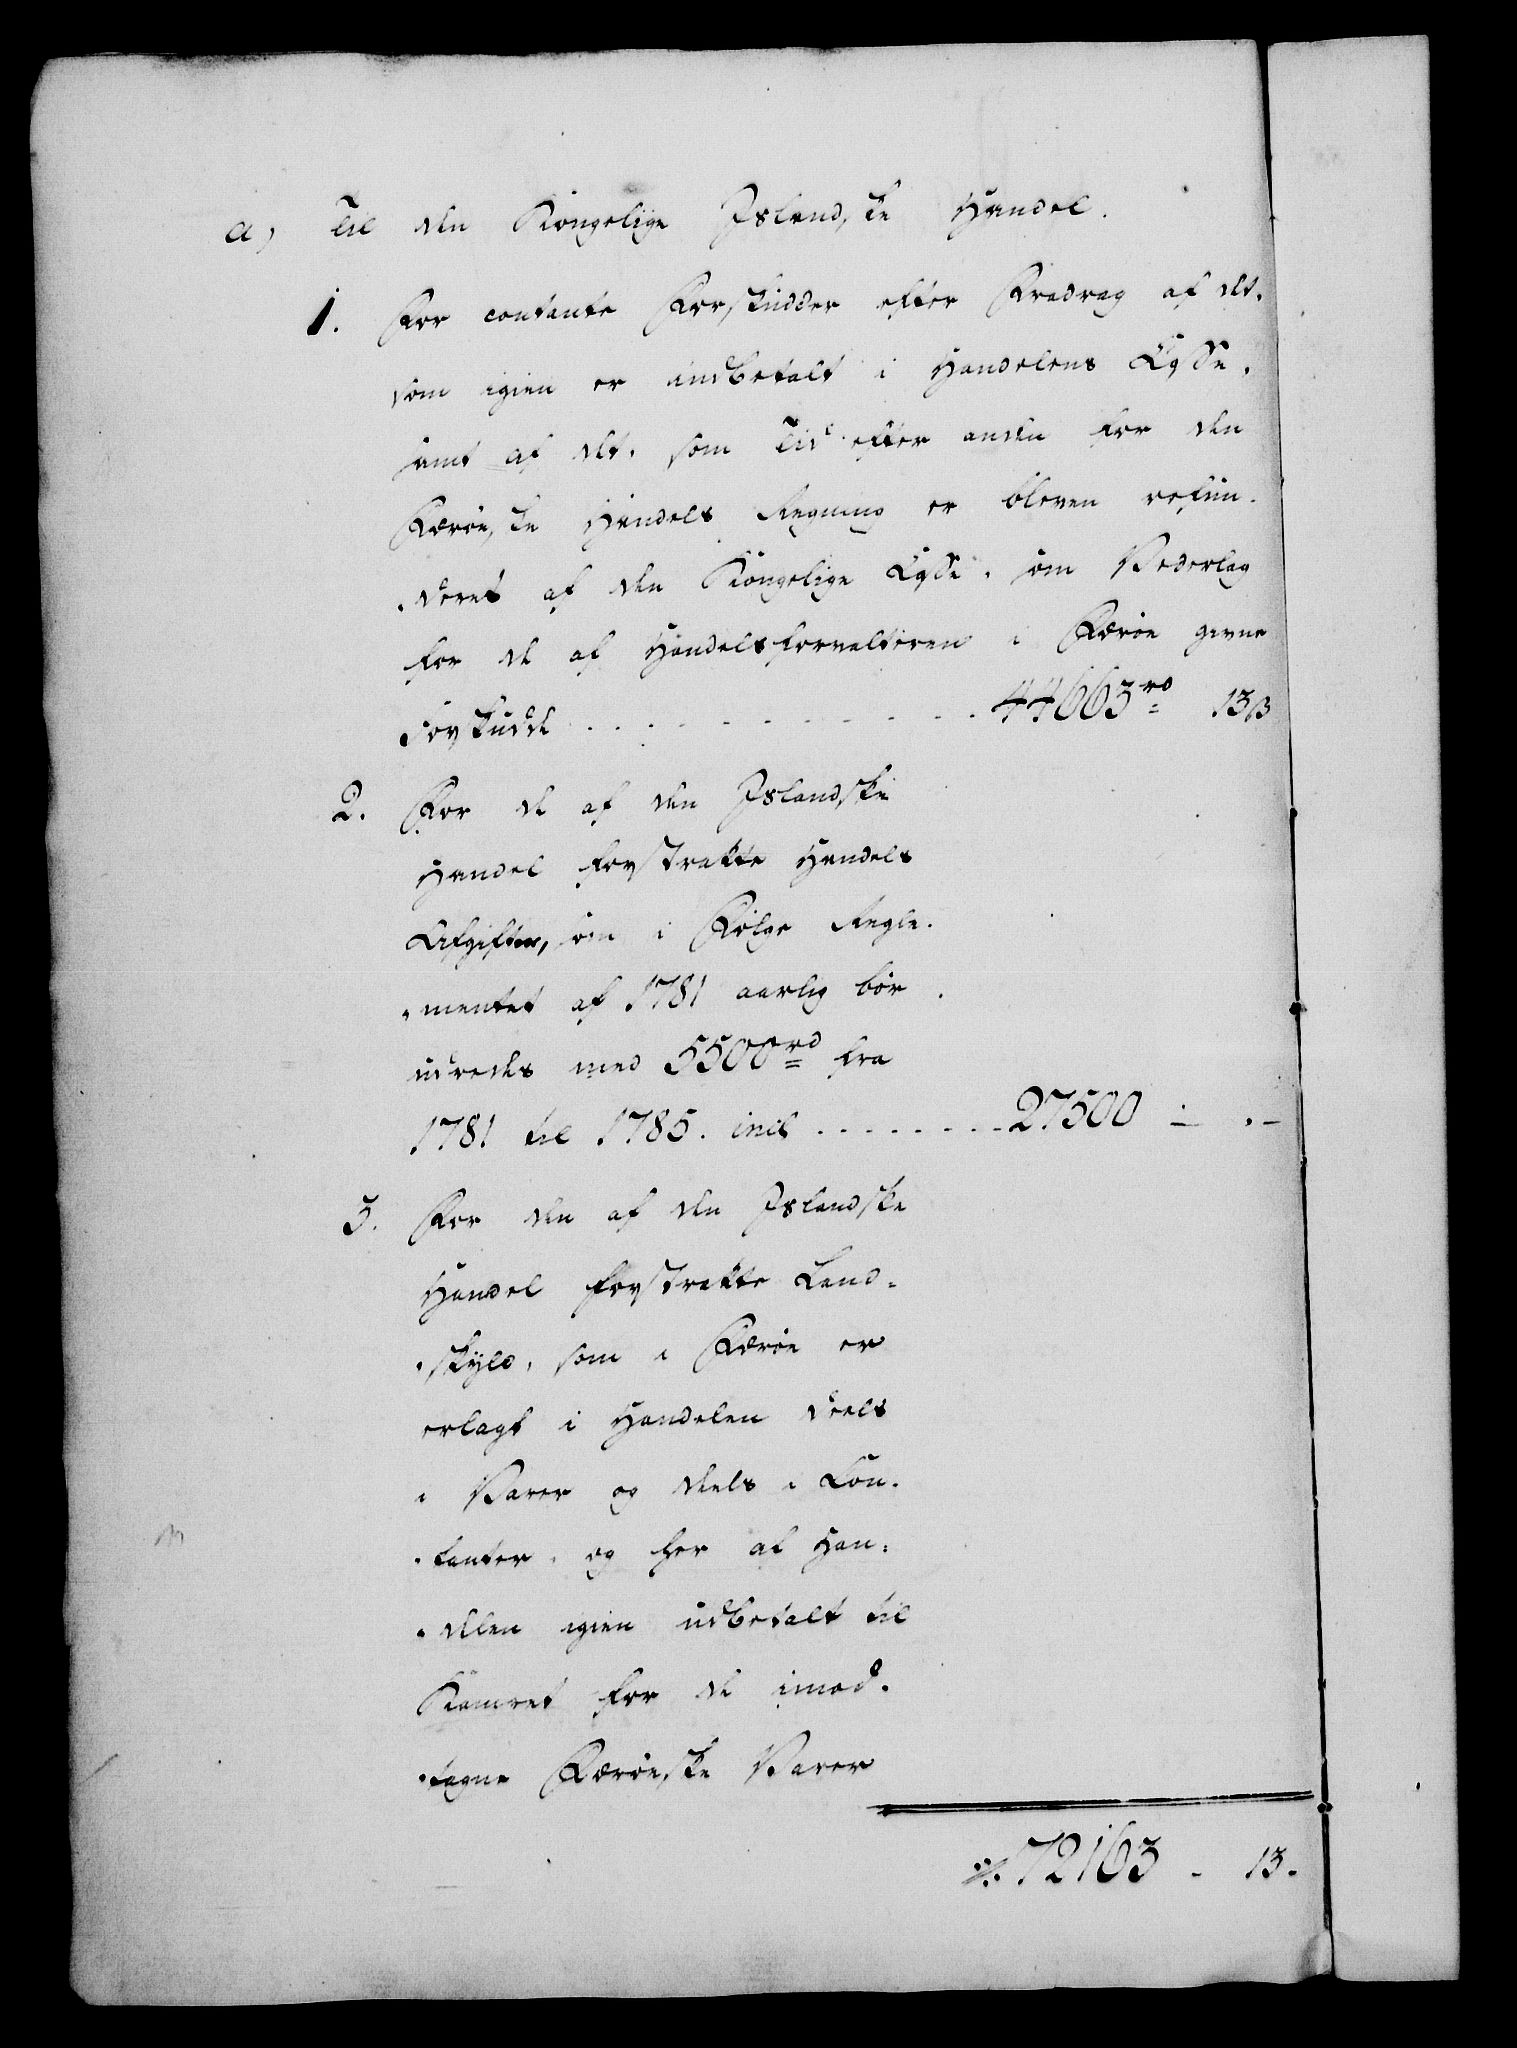 a, Til den Kongelige Islandske Handel.
1. For contante Forskudder efter Fradrag af det,
som igien er indbetalt i Handelens Casse,
samt af det, som Tid efter anden for den
Færøeske Handels Regning er bleven refun-
-deret af den Kongelige Casse, som Vederlag
for de af Handelsforvalteren i Færøe givne
Forskudde . . . . . . . . . . . . 44663 rd 13 ß
2. For de af den Islandske
Handel forstrakte Handels
Afgifter, som i Følge Regle-
-mentet af 1781 aarlig bør
udredes med 5500 rd fra
1781 til 1785. incl . . . . . . . . 27500 - . -
3. For den af den Islandske
Handel forstrakte Land-
-skyld, som i Færøe er
erlagt i Handelen deels
i Varer og deels i Con-
-tanter, og her af Han-
-delen igien udbetalt til
Kamret for de imod-
-tagne Færøeske Varer
72163 - 13 -